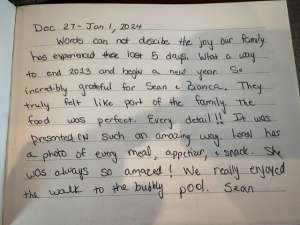 Dec 27 - Jan 1, 2024
Words can not describe the joy our family
has experienced these last 5 days. What a way
to end 2023 and begin a new year. So
incredibly grateful for Sean & Bianca. They
truly felt like part of the family. The
food was perfect. Every detail!! It was
presented in such an amazing way. has
a photo of every meal, appetizer, & snack. She
was always so amazed! We really enjoyed
the walk to the bubbly pool. Sean